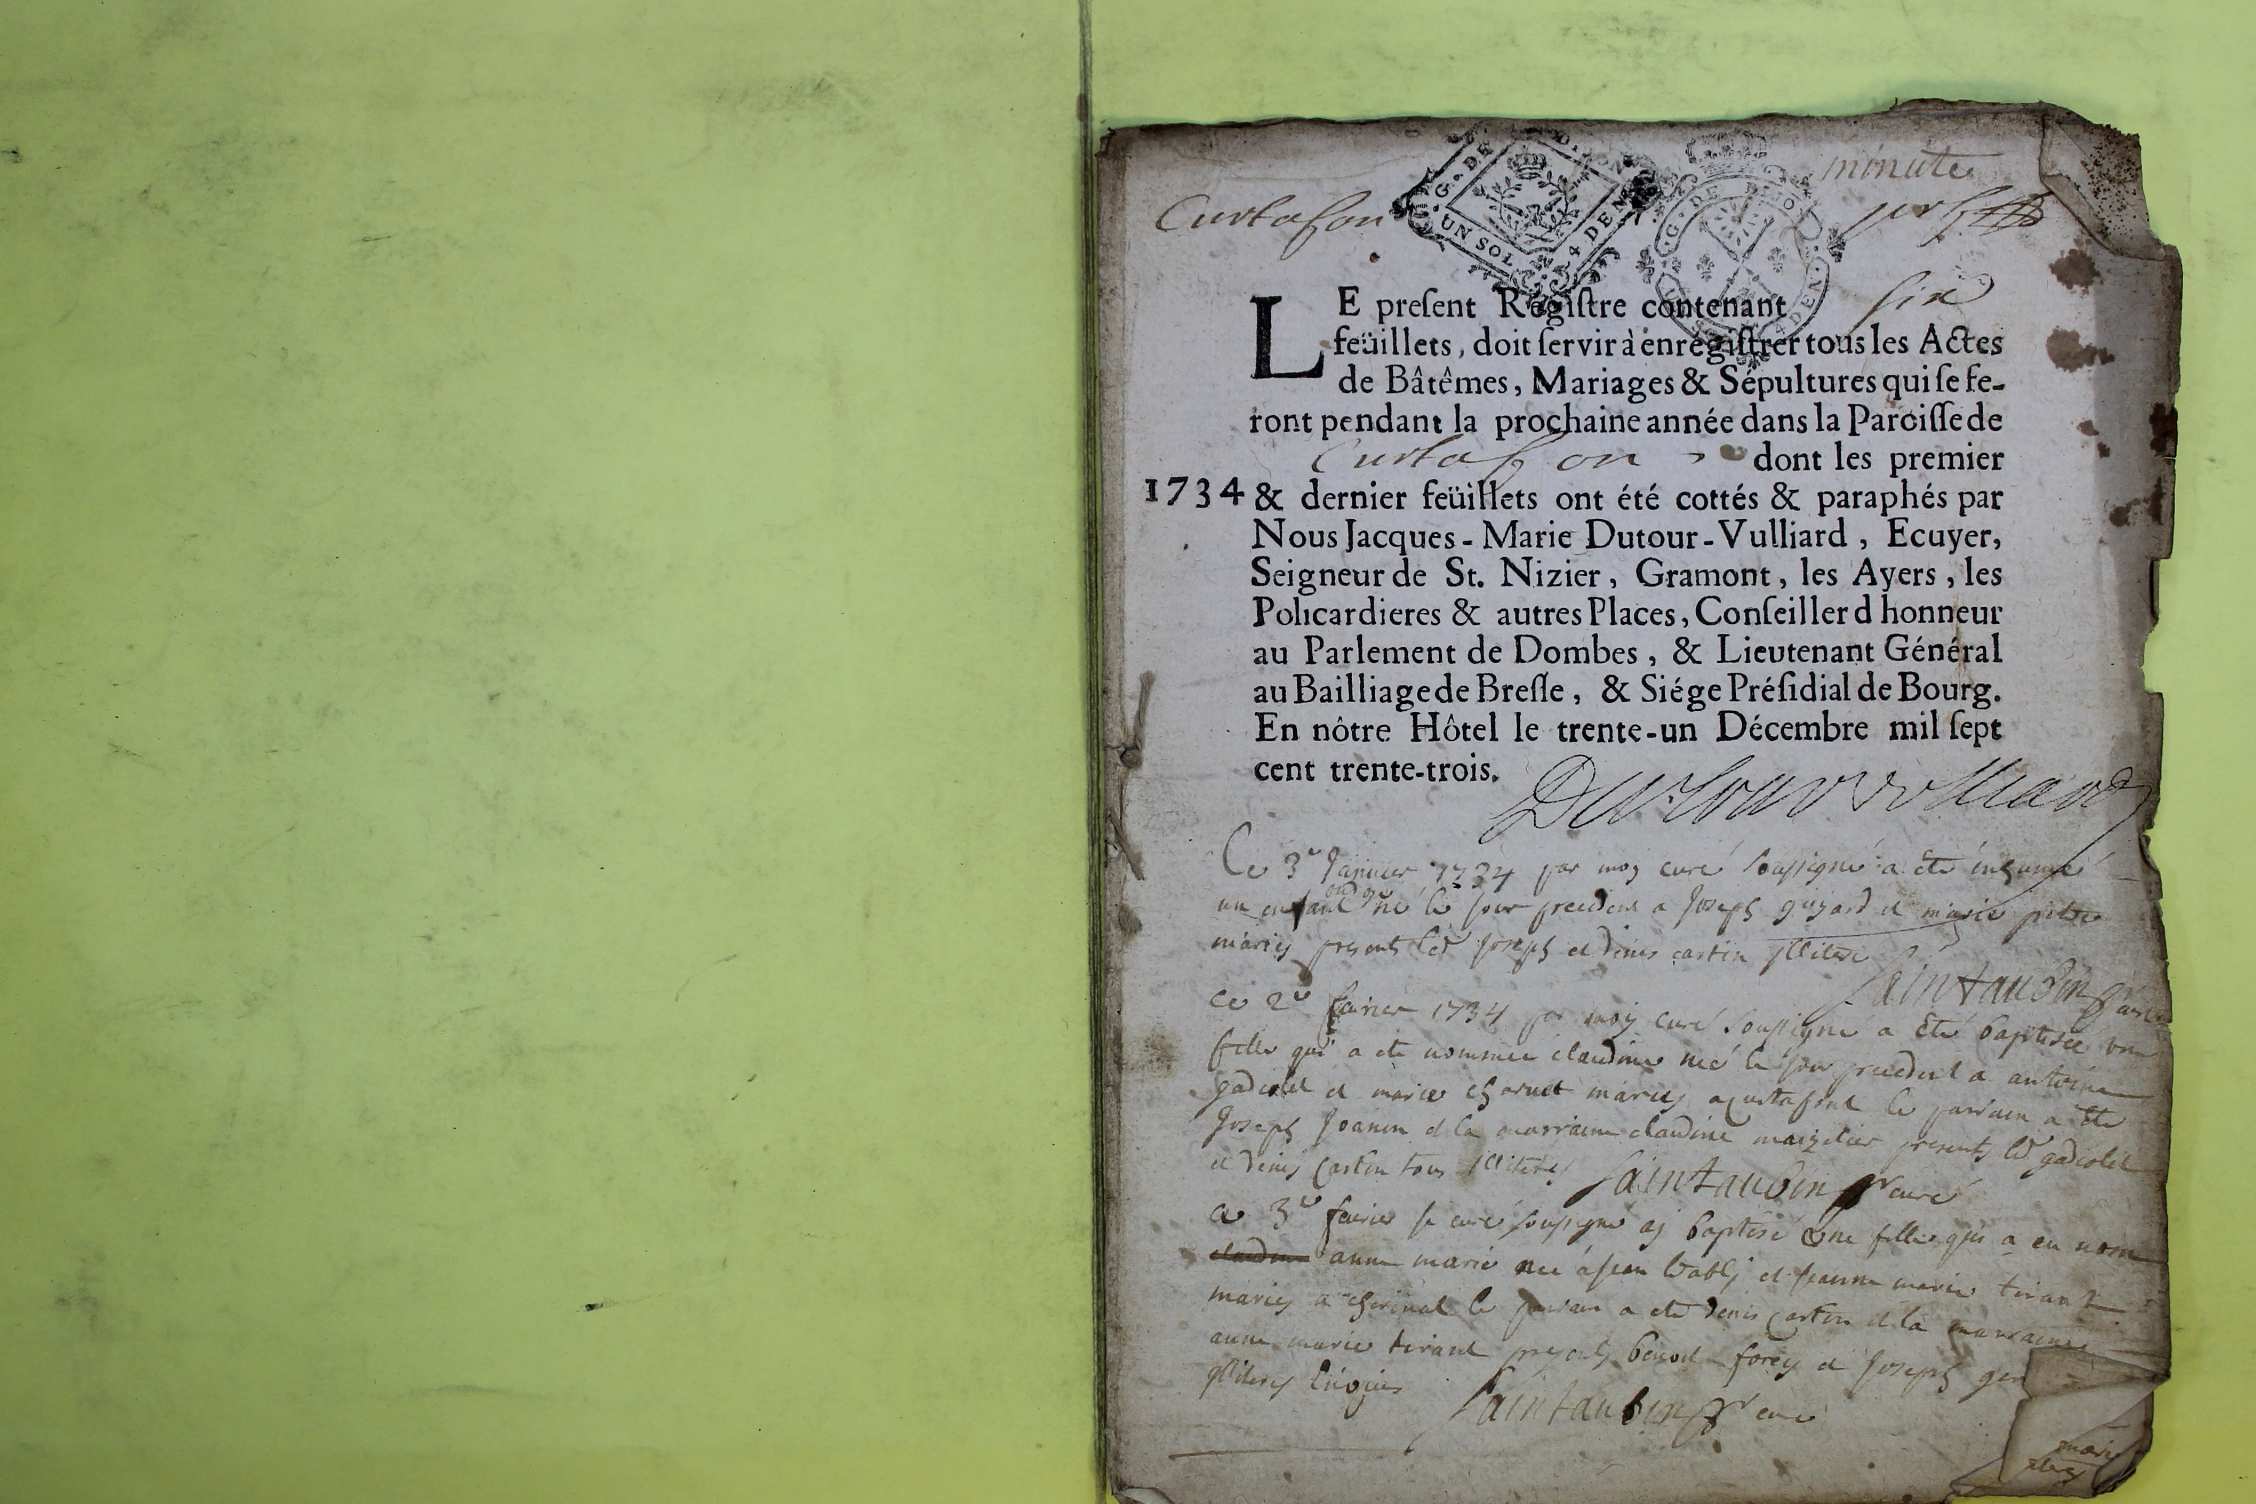 minute
Curtafon
G. DE DIJON
UN SOL 4 DEN.
G. DE DIJON
4 DEN.
LE preſent Regiſtre contenant six
feüillets, doit ſervir à enrégiſtrer tous les Actes
de Bâtêmes, Mariages & Sépultures qui ſe fe-
ront pendant la prochaine année dans la Paroiſſe de
Curtafon dont les premier
1734 & dernier feüillets ont été cottés & paraphés par
Nous Jacques-Marie Dutour-Vulliard, Ecuyer,
Seigneur de St. Nizier, Gramont, les Ayers, les
Policardieres & autres Places, Conſeiller d honneur
au Parlement de Dombes, & Lieutenant Général
au Bailliage de Breſſe, & Siége Préſidial de Bourg.
En nôtre Hôtel le trente-un Décembre mil ſept
cent trente-trois.
Dutour Vulliard
Ce 3e Janvier 1734 par moy curé soussigné a été inhumé
un enfant né le jour precedent a Joseph et marie
mariés presents led Joseph et Denis cartin
Saintaubin
ce 2e fevrier 1734 par moy curé soussigné a été baptisée une
fille qui a ete nommée claudine neé le jour precedent a antoine
gadiolet et marie charvet mariés a curtafond le parrain a ete
Joseph Joanin et la marraine claudine presents led gadiolet
et Denis cartin tous illiteres Saintaubin curé
ce 3e fevrier je curé soussigné ay baptisé une fille qui a eu nom
claudine anne marie neé a jean et jeanne marie tirant
mariés a le parrain a ete Denis cartin et la marraine
anne marie tirant presents benoit forey et Joseph
illiteres Saintaubin curé